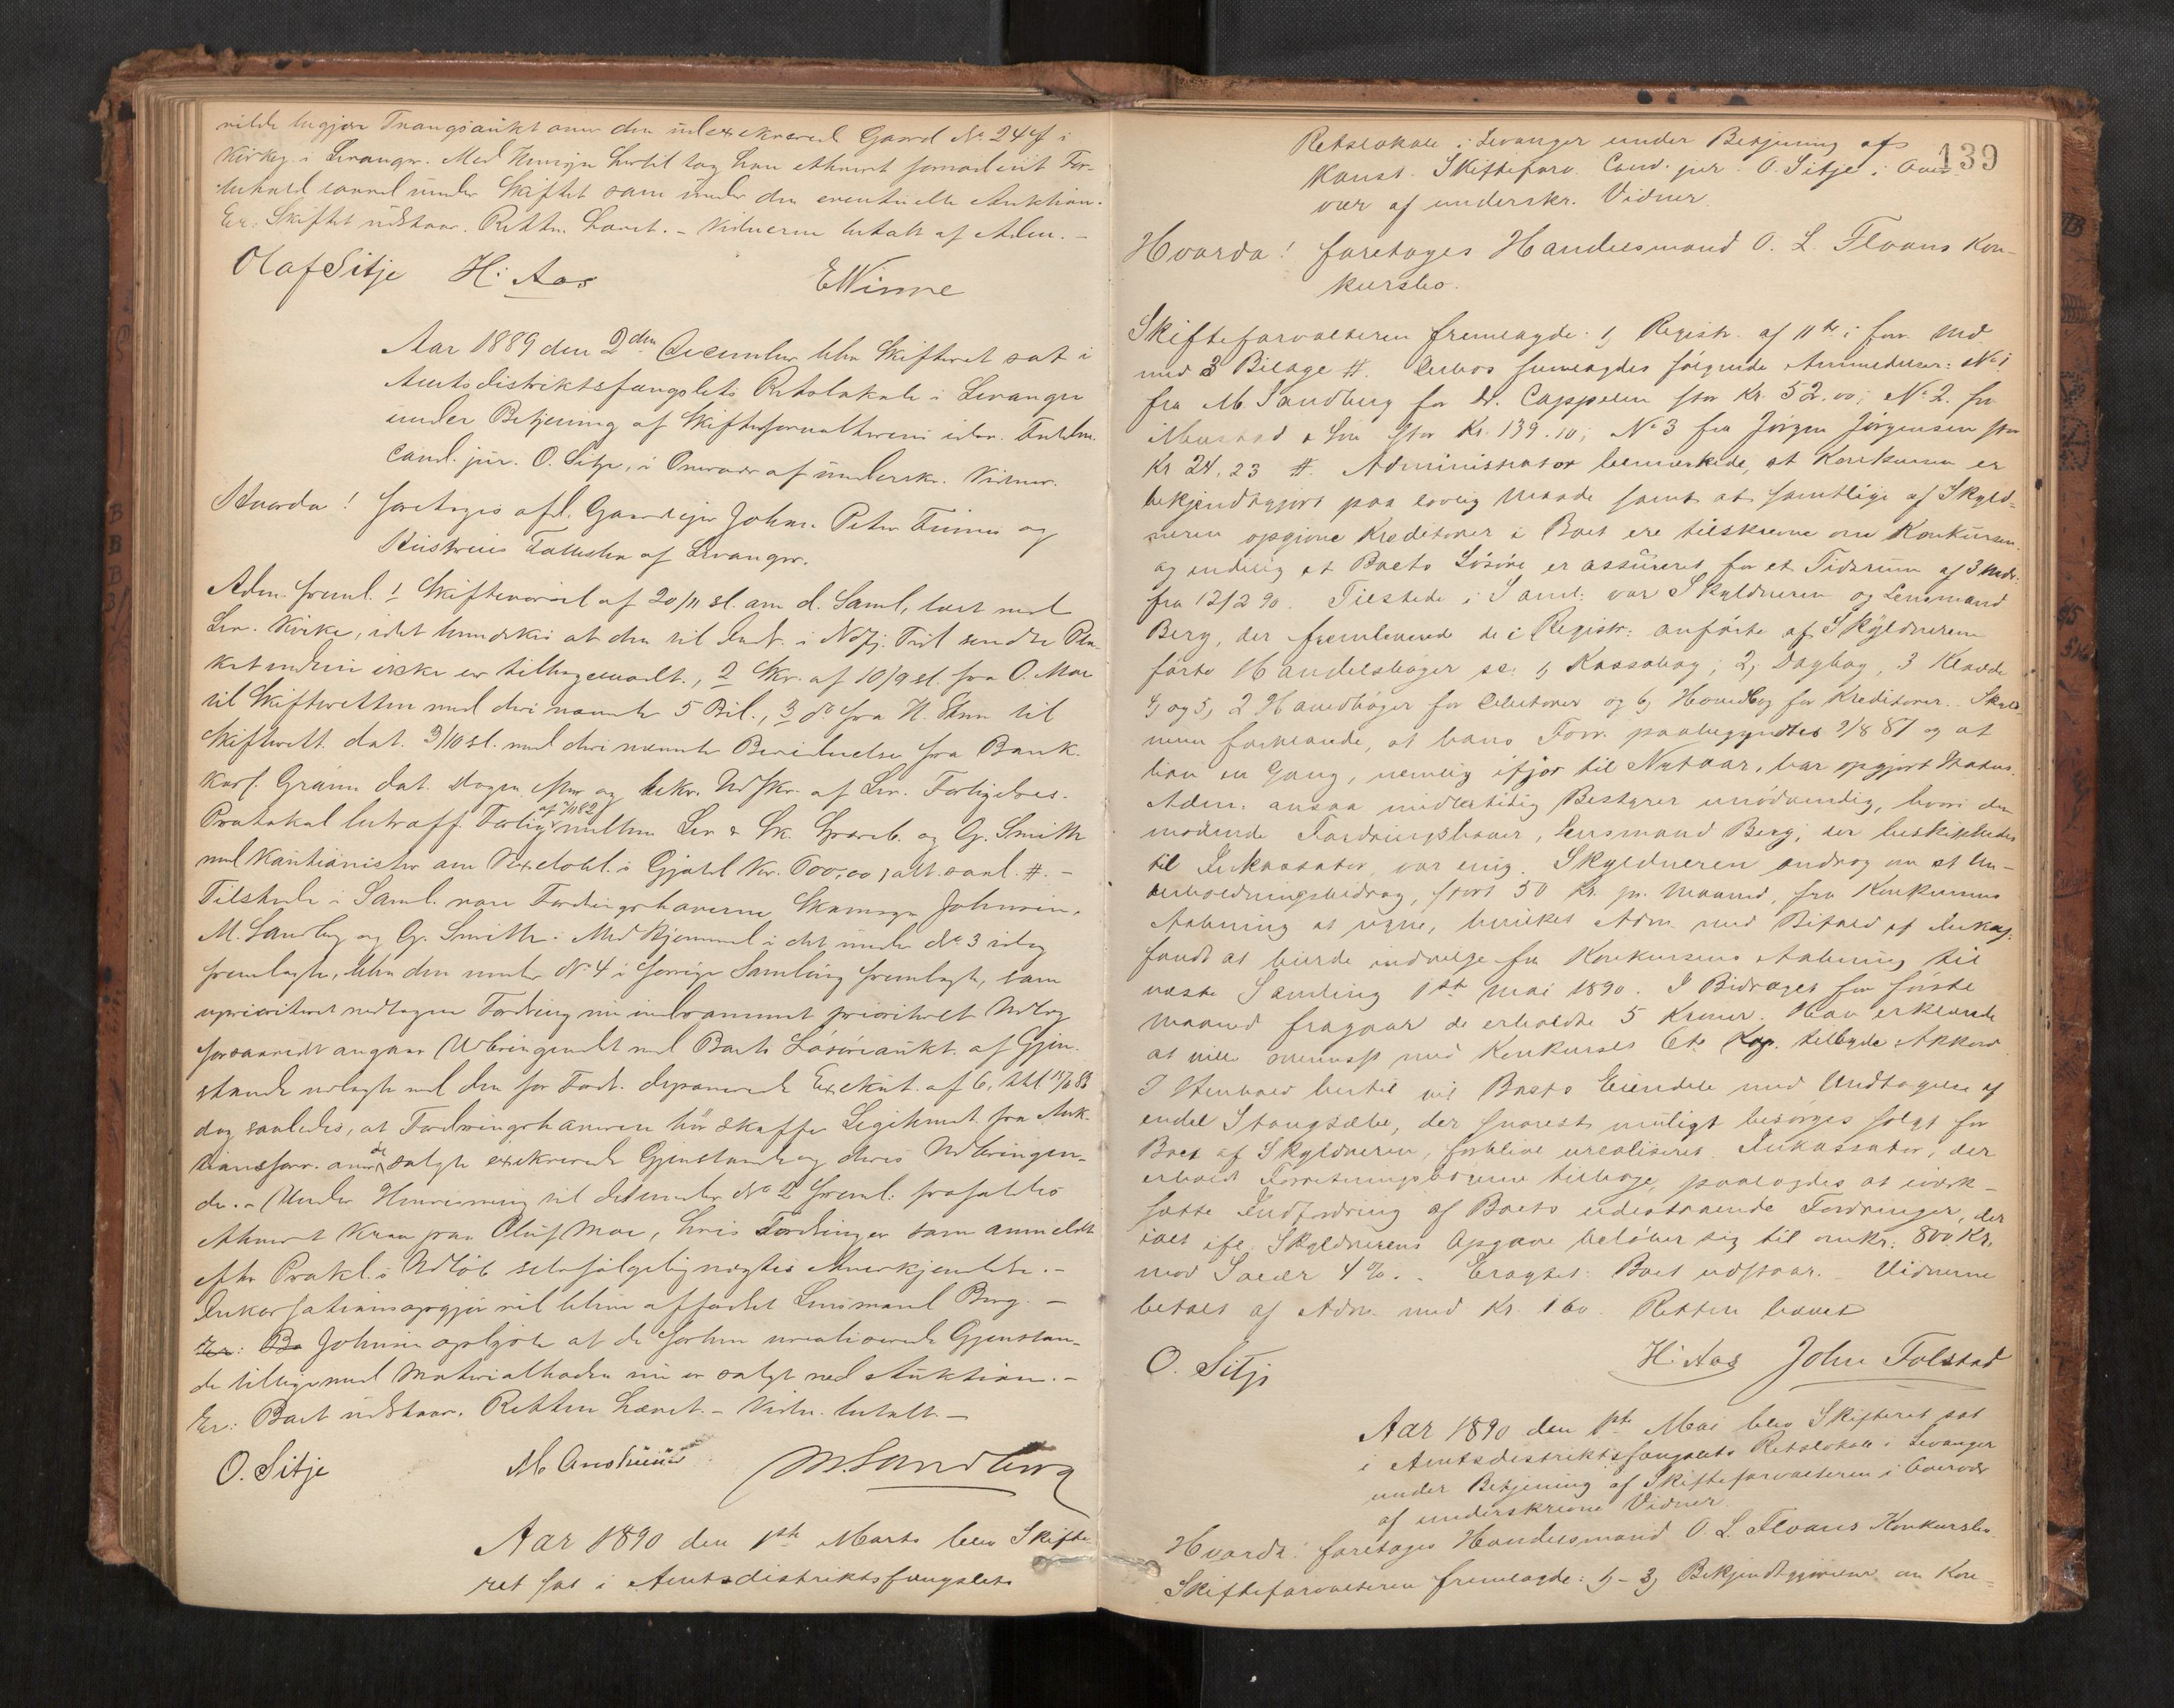 vilde begjære Tvangsauktion over den udexekverede Gaard No 24 f i
Kirkeg. i Levanger. Med Hensyn hertil tog han ethvert fornødent For-
behold saavel under Skiftet som under den eventuelle Auktion.
Er. Skiftet udstaar. Retten hævet. - Vidnerne betalt af Adm. -
Olaf Sitje H: Aas EWinne
Aar 1889 den 2den December blev Skifteret sat i
Amtsdistriktsfængslets Retslokale i Levanger
under Betjening af Skifteforvalterens edsv. Fuldm.
cand. jur. O. Sitje, i Overvær af underskr. Vidner.
Hvorda! foretoges afd. Gaardejer Johan Peter Finnes og
Hustrues Fallesbo af Levanger.
Adm. freml. 1 Skiftevarsel af 20/11 sl. om d. Saml, læst ved
Lev. Kirke, idet bemærkes at den til Indr. i Ndfj. Tid. sendte Pla-
kat endnu ikke er tilbagesendt., 2 Skr. af 10/9 sl. fra O. Moe
til Skifteretten med deri nævnte 5 Bil., 3 do fra N. til
Skifterett. dat. 3/10 sl. med deri nævnte Bevidnelse fra Bank-
kass. Gram dat. Dagen efter og bekr. Udskr. af Lev. Forligelses-
Protokol betræff. Forlig af 7/11 82 mellem Lev & Sk. Spareb. og G. Smith
med Kautionister om Vexelobl. i Gjæld Kr. 600,00, alt saal. #. -
Tilstede i Saml. vare Fordringshaverne Skomager Johnsen,
M. Sandberg og G. Smith. Med Hjemmel i det under No 3 idag
fremlagte, blev den under No 4 i forrige Samling fremlagte, som
uprioriteret vedtagne Fordring nu indrømmet prioriteret Udlæg
forsaavidt angaar Udbringendet ved Boets Løsøreaukt. af Gjen-
stande udlagte ved den for Fordr. deponerede Exekut. af 6.
dog saaledes, at Fordringshaveren bør skaffe Legitimat. fra Auk-
tionsforr. over de solgte exekverede Gjenstande og deres Udbringen-
de. - Under Henvisning til det under No 2 freml. frafaldtes
ethvert Krav paa Oluf Moe, hvis Fordringer som anmeldt
efter Prokl.s Udløb selvfølgelig nægtes Anerkjendelse. -
Inkassationsopgjør vil blive affordret Lensmand Berg. -
Er: Bo Johnsen oplyste at de forhen urealiserede Gjenstan-
de tilligemed Materialboden nu er solgt ved Auktion. -
Er: Boet udstaar. Retten hævet. - Vidn. betalt. -
O. Sitje M. Arnstuen M. Sandberg
Aar 1890 den 1ste Marts blev Skifte-
ret sat i Amtsdistriktsfængslets
139
Retslokale i Levanger under Betjening af
Konst. Skifteforv. Cand. jur. O. Sitje i Over-
vær af underskr. Vidner.
Hvorda! foretoges Handelsmand O. L. Floans Kon-
kursbo.
Skifteforvalteren fremlagde: 1, Registr. af 11te i forr. Md.
med 3 Bilage #. Derhos fremlagdes følgende Anmeldelser: No 1
fra M. Sandberg for Dr. Cappelen stor Kr. 52.00; No 2. fra
Mustad & Søn stor Kr. 139.10; No 3 fra Jørgen Jørgensen stor
Kr 24.23 #. Administrator bemærkede, at Konkursen er
bekjendtgjort paa lovlig Maade samt at samtlige af Skyld-
neren opgivne Kreditorer i Boet ere tilskrevne om Konkursen
og endelig at Boets Løsøre er assureret for et Tidsrum af 3 Mdr.
fra 12/2 90. Tilstede i Saml. var Skyldneren og Lensmand
Berg, der fremleverede de i Registr. anførte af Skyldneren
førte Handelsbøger sc: 1, Kassabog; 2, Dagbog, 3 Kladde
4, og 5, 2 Hovedbøger for Debitorer og 6, Hovedbog for Kreditorer. Skyld-
neren forklarede, at hans Forr. paabegyndtes 2/8 87 og at
han en Gang, nemlig ifjor til Nytaar, har opgjort Status.
Adm. ansaa midlertidig Bestyrer unødvendig, hvori den
mødende Fordringshaver, Lensmand Berg, der beskikkedes
til Inkassator, var enig. Skyldneren androg om et Un-
derholdningsbidrag, stort 50 Kr. pr. Maaned, fra Konkursens
Aabning at regne, hvilket Adm. med Bifald af Inkas.
fandt at burde indvilge fra Konkursens Aabning til
næste Samling 1ste Mai 1890. I Bidraget for første
Maaned fragaar de erholdte 5 Kroner. Han erklærede
at ville overensst. med Konkursl. 6te Kap. tilbyde Akkord
I Henhold hertil vil Boets Eiendele med Undtagelse af
endel Stangsæbe, der snarest muligt besørges solgt for
Boet af Skyldneren, forblive urealiseret. Inkassator, der
erholdt Forretningsbøgerne tilbage, paalagdes at iværk-
sætte Indfordring af Boets udestaaende Fordringer, der
idet ifl. Skyldnerens Opgave beløber sig til omkr. 800 Kr.
mod Salær 4 %. - Eragtet: Boet udstaar. - Vidnerne
betalt af Adm. med Kr. 1 60. Retten hævet
O. Sitje H: Aas John Tolstad
Aar 1890 den 1ste Mai blev Skifteret sat
i Amtsdistriktsfængslets Retslokale i Levanger
under Betjening af Skifteforvalteren i Overvær
af underskrevne Vidner.
Hvorda! foretoges Handelsmand O. L. Floans Konkursbo.
Skifteforvalteren fremlagde: 1, - 3, Bekjendtgjørelser om Kon-